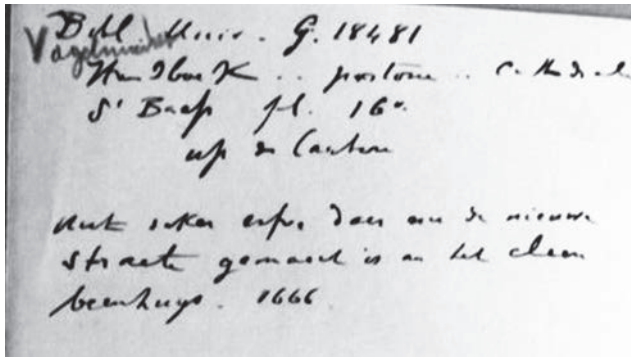 Bibl. Univ. G. 18481
Vogelmarkt
Handboek .. pastorie .. Cathedral
St Baafs fl. 16v.
up de Cautere
Met seker erfve daer nu de nieuwe
straete gemaect is an het cleen
beenhuys. 1666